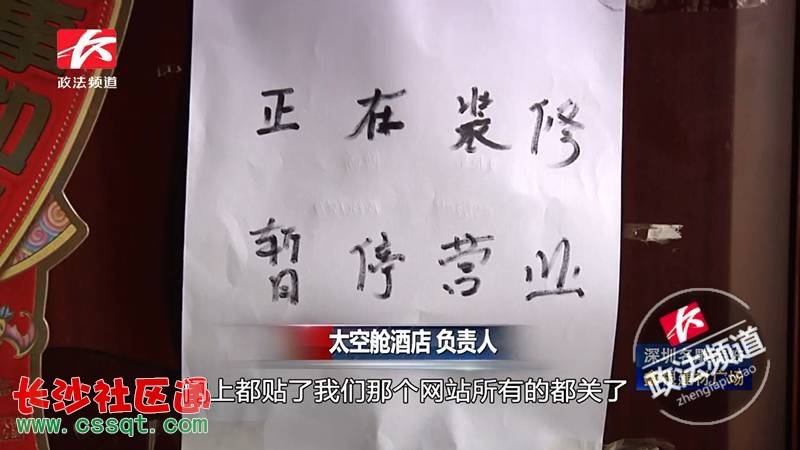 政法频道
正在装修
暂停营业
太空舱酒店 负责人
上都贴了我们那个网站所有的都关了
长沙社区通
www.cssqt.com
政法频道
zhengfapindao
深圳